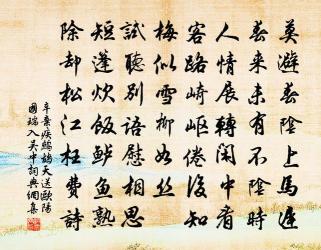 莫避春陰上馬遲
春来未有不陰時
人情展轉閑中看
客路崎岖倦後知
梅似雪柳如丝
試聽別語慰相思
短蓬炊飯鲈魚熟
除却松江枉費詩
辛棄疾鷓鴣天送歐陽
國瑞入吴中詞典網集